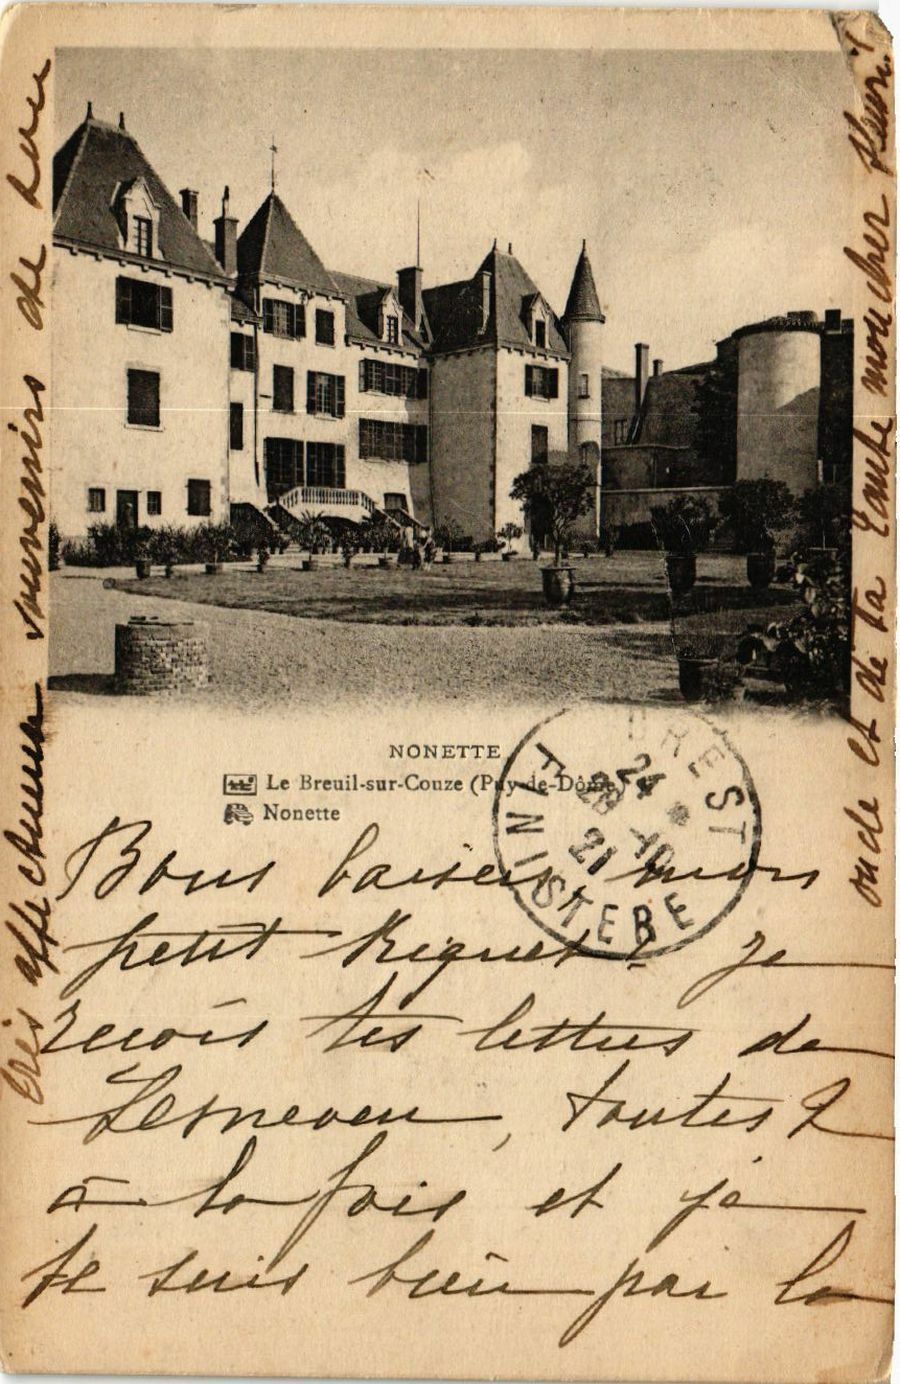 NONETTE
Le Breuil-sur-Couze (Puy-de-Dôme)
Nonette
BREST
24
28 -10
21
FINISTERE
Bons baisers mon
petit Riquet. je
reçois tes lettres de
Lesneven, toutes 2
à la fois et je
te suis bien par la
très affectueux souvenirs de ton
oncle et de ta tante mon cher Henri!